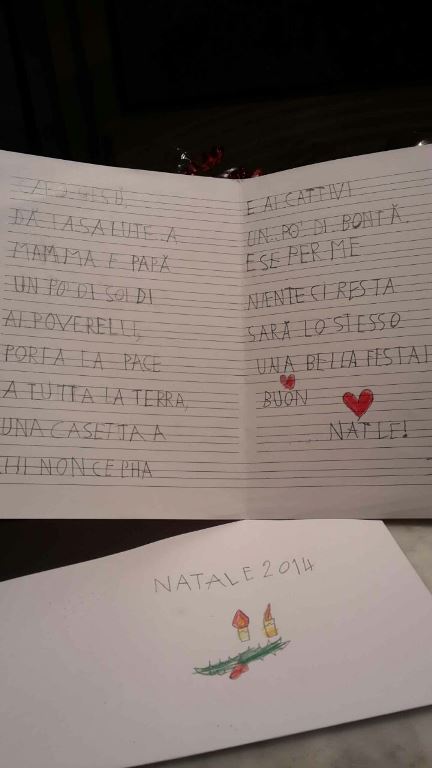 CARO GESÙ,
DÀ LA SALUTE A
MAMMA E PAPÀ
UN PO' DI SOLDI
AI POVERELLI,
PORTA LA PACE
A TUTTA LA TERRA,
UNA CASETTA A
CHI NON CE L'HA
E AI CATTIVI
UN PO' DI BONTÀ.
E SE PER ME
NIENTE CI RESTA
SARÀ LO STESSO
UNA BELLA FESTA!
BUON
NATLE!
NATALE 2014